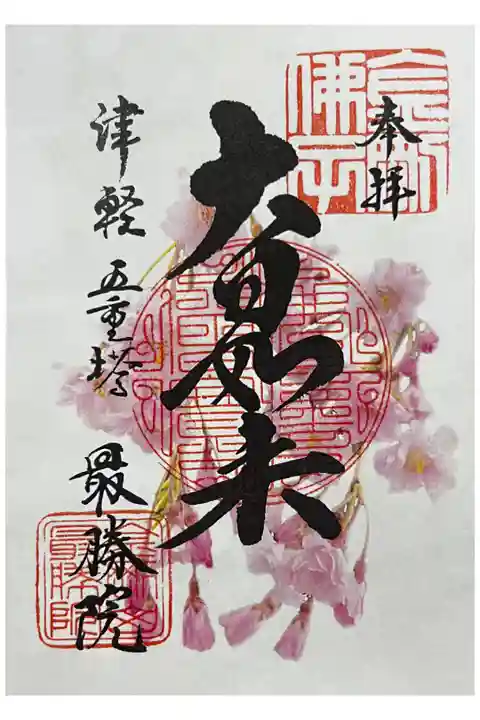 奉拝
大日如来
津軽 五重塔 最勝院